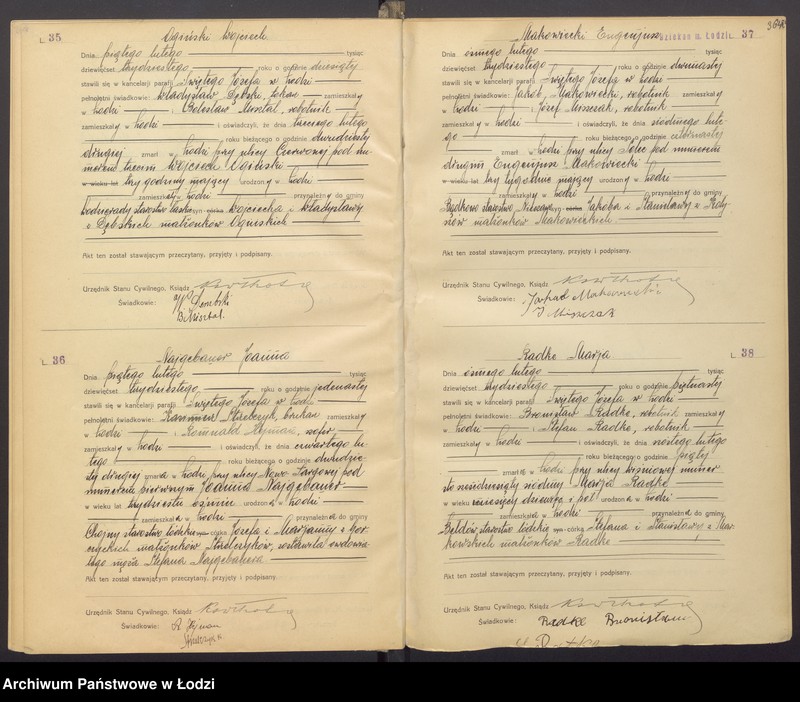 L. 35
Ogiński Wojciech
Dnia piątego lutego tysiąc
dziewięćset trzydziestego roku o godzinie dziesiątej
stawili się w kancelarji parafji Świętego Józefa w Łodzi
pełnoletni świadkowie: Władysław Dębski, zamieszkały
w Łodzi i Bolesław Misztal, robotnik
zamieszkały w Łodzi i oświadczyli, że dnia trzeciego lutego
roku bieżącego o godzinie dwudziestej
drugiej zmarł w Łodzi przy ulicy Czerwonej pod nu-
merem trzecim Wojciech Ogiński
w wieku lat trzy godziny mający urodzony w Łodzi
zamieszkały w Łodzi przynależny do gminy
Wodzierady starostwo Łaskie syn córka Wojciecha i Władysławy
z Dębskich małżonków Ogińskich
Akt ten został stawającym przeczytany, przyjęty i podpisany.
Urzędnik Stanu Cywilnego, Ksiądz
Świadkowie: W Dembski
B. Misztal.
L. 36
Najgebauer Joanna
Dnia piątego lutego tysiąc
dziewięćset trzydziestego roku o godzinie jedenastej
stawili się w kancelarji parafji Świętego Józefa w Łodzi
pełnoletni świadkowie: Kazimierz zamieszkały
w Łodzi i Romuald szofer
zamieszkały w Łodzi i oświadczyli, że dnia czwartego lu-
tego roku bieżącego o godzinie dwudzie-
stej drugiej zmarła w Łodzi przy ulicy Nowo-Targowej pod
numerem pierwszym Joanna Najgebauer
w wieku lat trzydzieści ośm urodzona w Łodzi
zamieszkała w Łodzi przynależna do gminy
Chojny starostwo Łódzkie syn córka Józefa i Marjanny z
małżonków zostawiła owdowia-
łego męża Stefana Najgebauera
Akt ten został stawającym przeczytany, przyjęty i podpisany.
Urzędnik Stanu Cywilnego, Ksiądz
Świadkowie: R
L. 37
Makowiecki Eugenjusz
Dnia ósmego lutego tysiąc
dziewięćset trzydziestego roku o godzinie dwunastej
stawili się w kancelarji parafji Świętego Józefa w Łodzi
pełnoletni świadkowie: Jakób Makowiecki, robotnik zamieszkały
w Łodzi i Józef Miszczak, robotnik
zamieszkały w Łodzi i oświadczyli, że dnia siódmego lute-
go roku bieżącego o godzinie czternastej
zmarł w Łodzi przy ulicy Solec pod numerem
drugim Eugenjusz Makowiecki
w wieku lat trzy tygodnie mający urodzony w Łodzi
zamieszkały w Łodzi przynależny do gminy
starostwo syn córka Jakóba i Stanisławy z
małżonków Makowieckich
Akt ten został stawającym przeczytany, przyjęty i podpisany.
Urzędnik Stanu Cywilnego, Ksiądz
Świadkowie: Jakub Makowiecki
J Miszczak
L. 38
Radke Marja
Dnia ósmego lutego tysiąc
dziewięćset trzydziestego roku o godzinie piętnastej
stawili się w kancelarji parafji Świętego Józefa w Łodzi
pełnoletni świadkowie: Bronisław Radke, robotnik zamieszkały
w Łodzi i Stefan Radke, robotnik
zamieszkały w Łodzi i oświadczyli, że dnia szóstego lutego
roku bieżącego o godzinie piątej
zmarła w Łodzi przy ulicy Wiśniowej numer
sto siódmy Marja Radke
w wieku miesięcy dziewięć i pół urodzona w Łodzi
zamieszkała w Łodzi przynależna do gminy
Bełdów, starostwo Łódzkie syn córka Stefana i Stanisławy z Mar-
kowskich małżonków Radke
Akt ten został stawającym przeczytany, przyjęty i podpisany.
Urzędnik Stanu Cywilnego, Ksiądz
Świadkowie: Radke Bronisław
Archiwum Państwowe w Łodzi